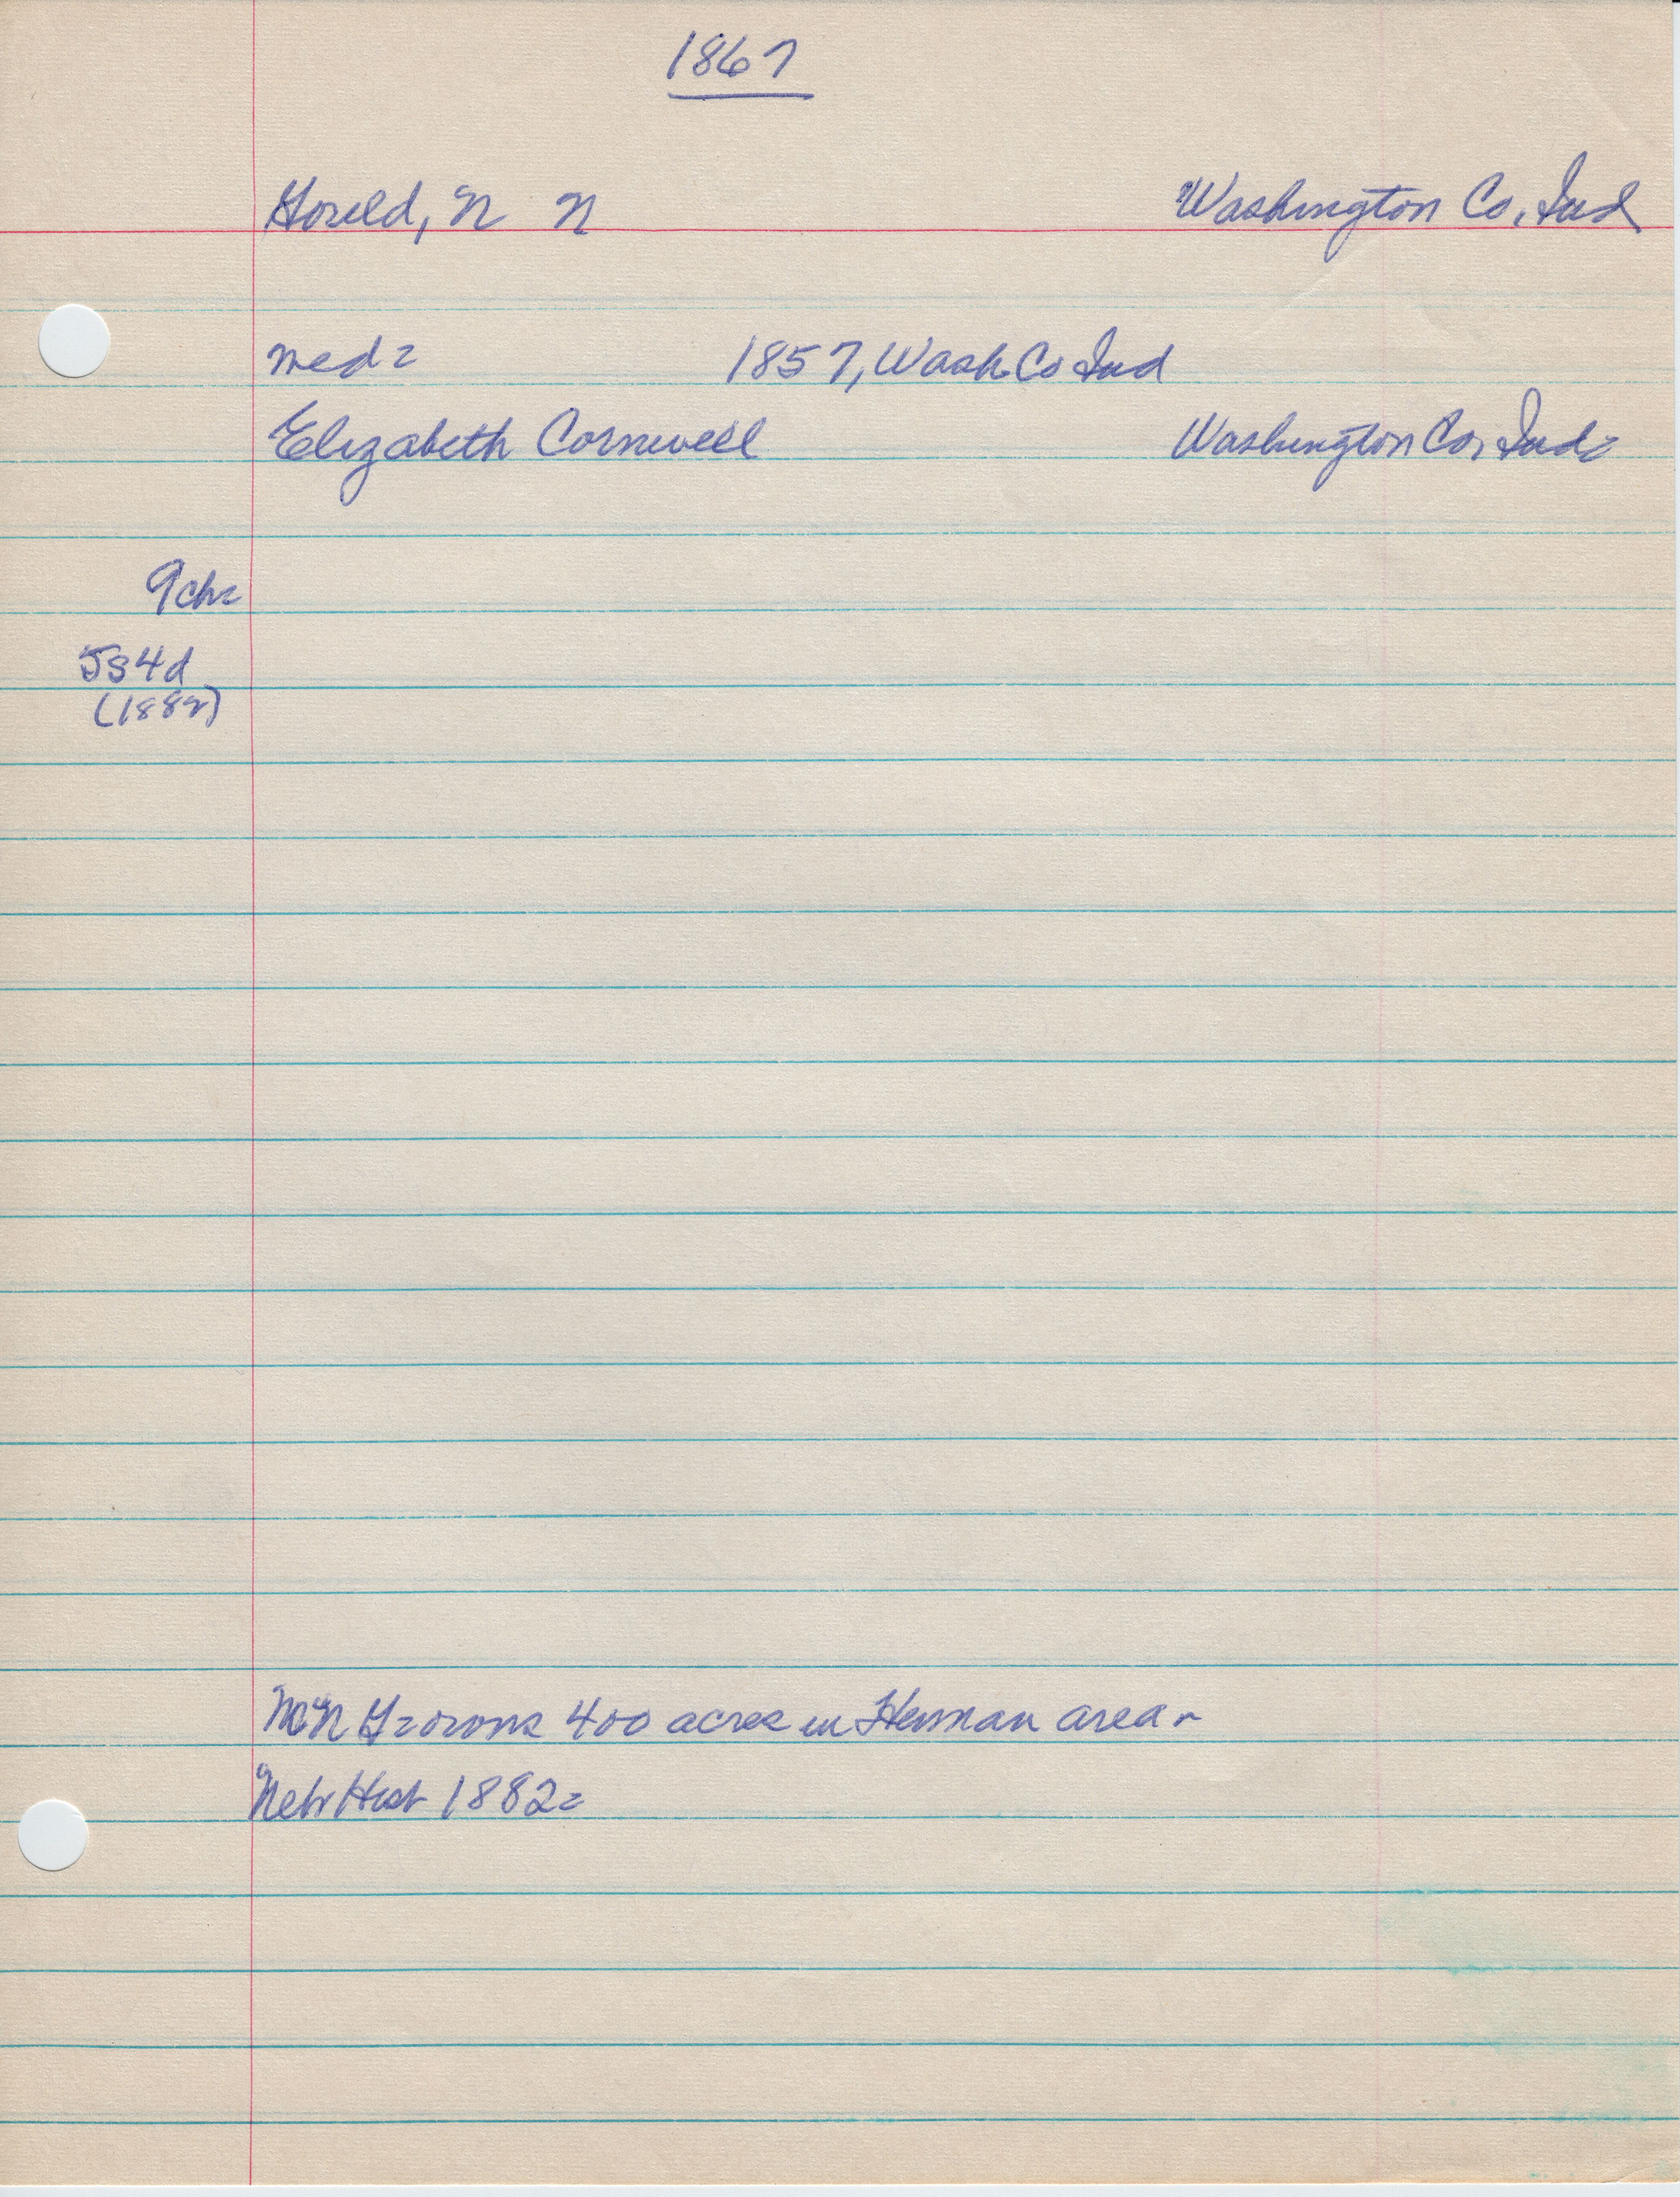 1867
N N Washington Co, Ind
md= 1857, Wash Co Ind
Elizabeth Cornwell Washington Co, Ind=
9ch=
5s 4d
(1882)
owns 400 acres in Herman area-
Nebr Hist 1882=